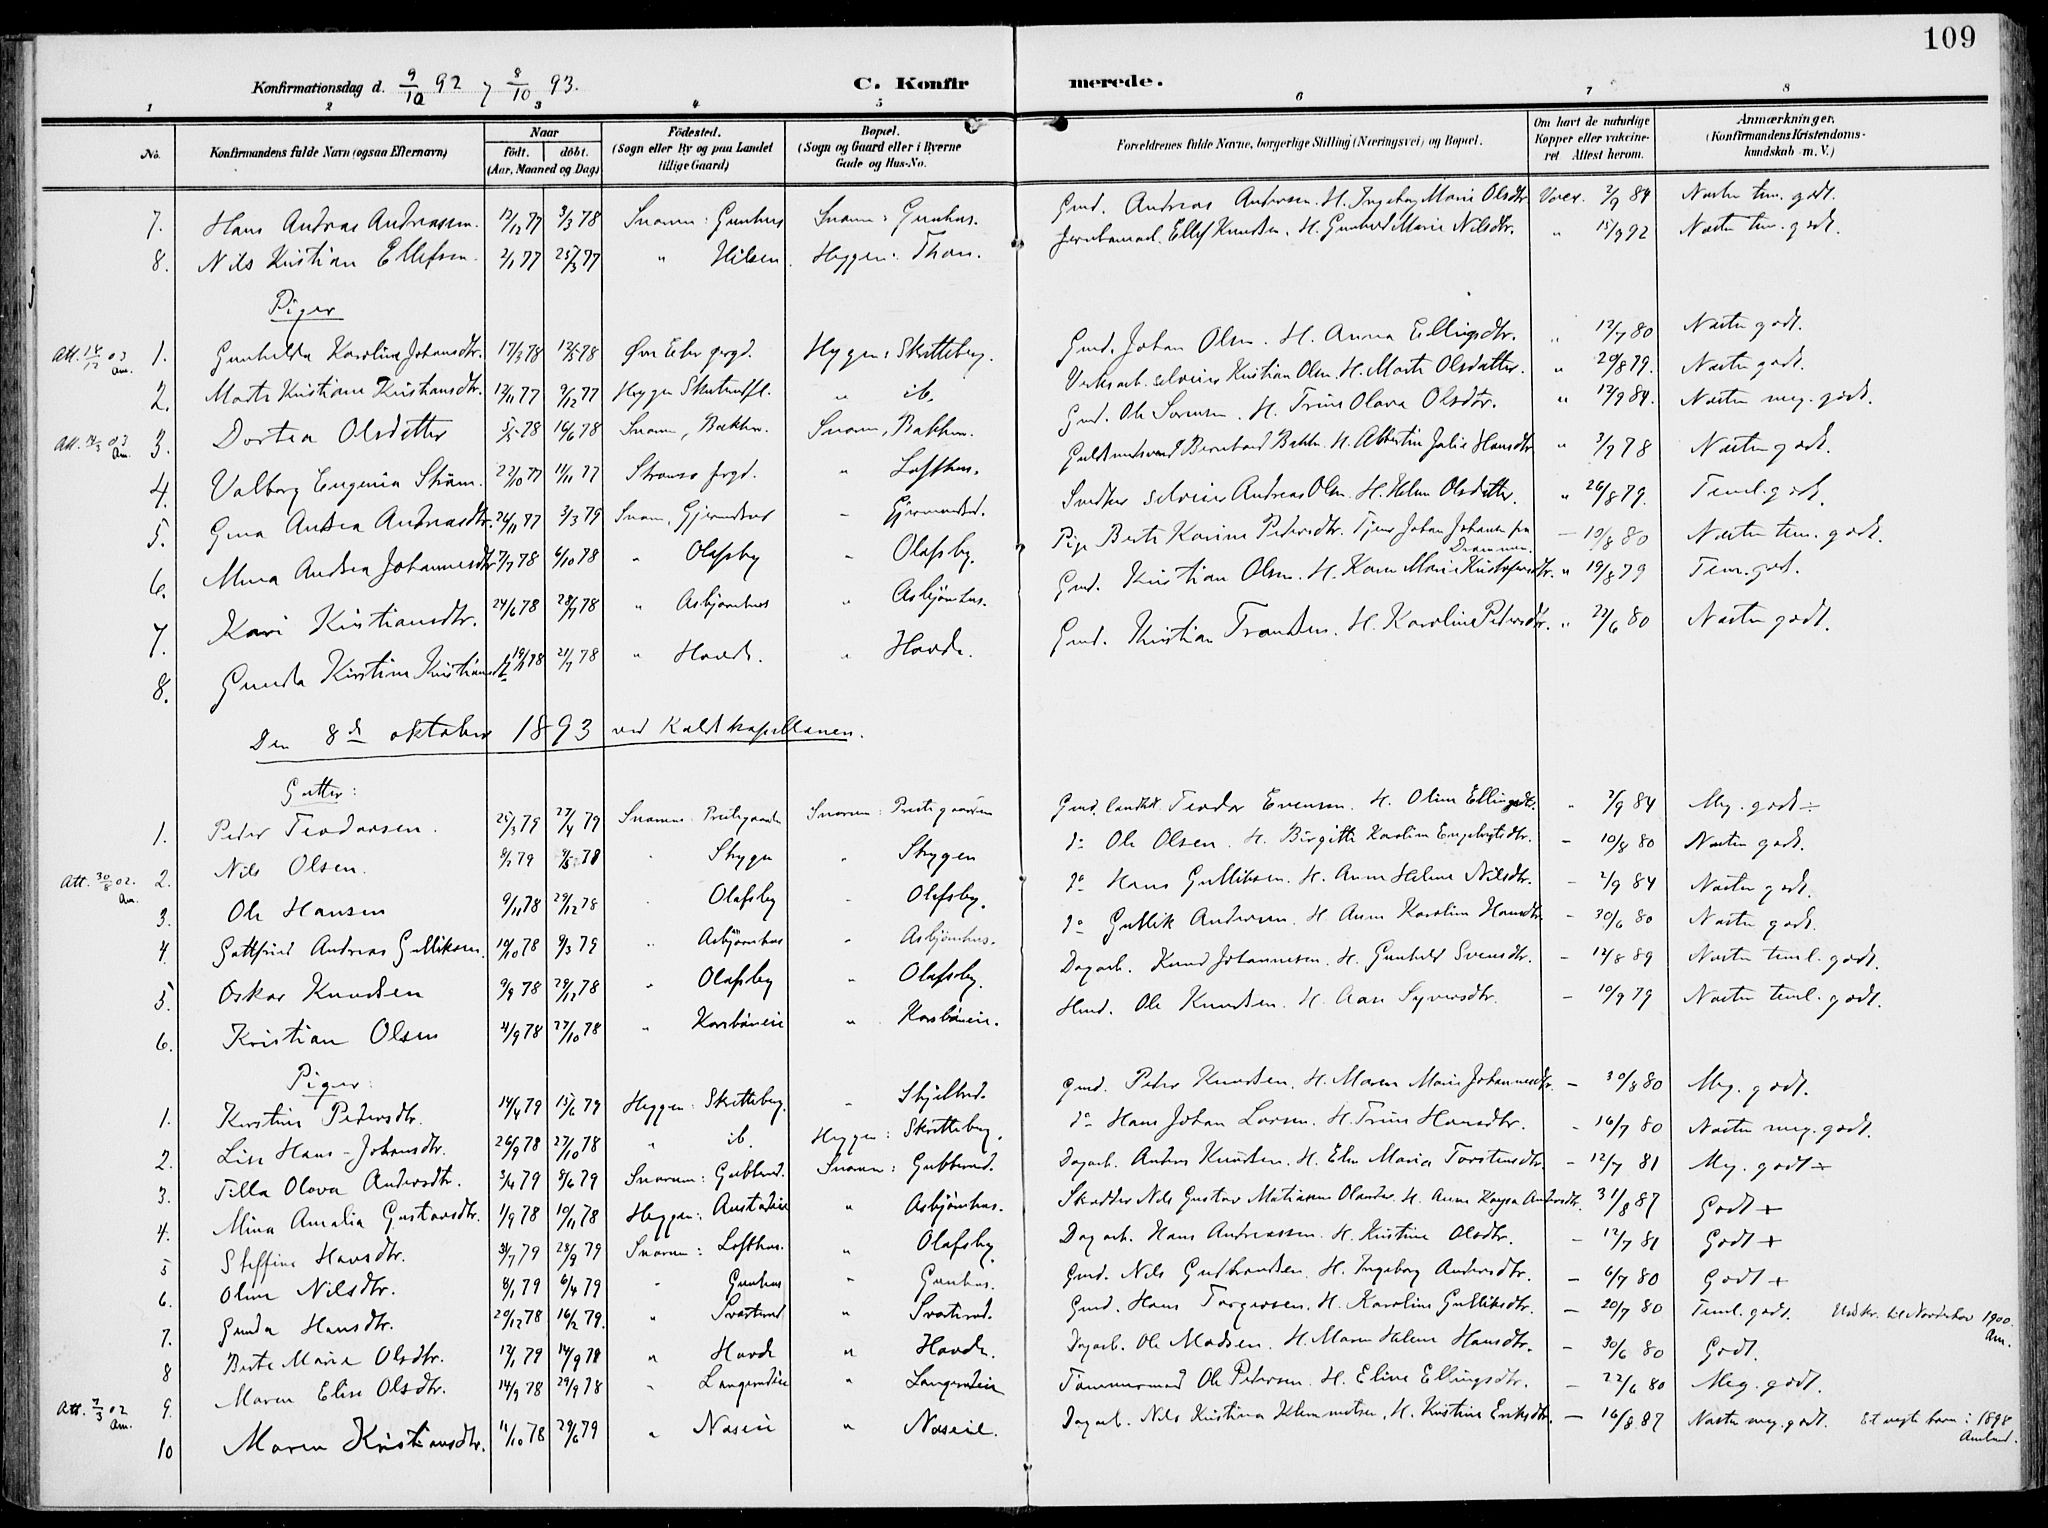 109
Konfirmationsdag d. 9/10 92 & 8/10 93. C. Konfirmerede.
1 2 3 4 5 6 7 8
No. Konfirmandens fulde Navn (ogsaa Efternavn) Naar født. døbt. (Aar, Maaned og Dag) Fødested. (Sogn eller By og paa Landet tillige Gaard) Bopæl. (Sogn og Gaard eller i Byerne Gade og Hus-No. Forældrenes fulde Navne, borgerlige Stilling (Næringsvei) og Bopæl. Om havt de naturlige Kopper eller vakcineret Attest herom. Anmærkninger. (Konfirmandens Kristendomskundskab m. V.)
7. Hans Andreas Andreassen. 12/12 77 3/3 78 Snarum: Gunhus Snarum: Gunhus. Gmd. Andreas Andersen. H. Ingeborg Marie Olsdtr. Vacc. 2/9 84 Næsten tem. godt.
8. Nils Kristian Ellefsen. 2/1 77 25/3 77 " Hilsen Heggen: Thon. Jernbanearb. Ellef Knudsen. H. Gunhild Marie Nilsdtr. " 15/9 92 Næsten tem. godt.
Piger
Att. 18/12 03 Am. 1. Gunhilda Karoline Johansdtr. 17/3 78 12/5 78 Øvre Eker prgd. Heggen: Skretteberg. Gmd. Johan Olsen. H. Anna Ellingsdtr. " 12/7 80 Næsten godt.
2. Marte Kristiane Kristiansdtr. 12/11 77 9/12 77 Heggen ib. Kristian Olsen. H. Marte Olsdatter. " 20/8 79. Næsten godt.
Att. 14/3 03 Am. 3. Dortea Olsdatter 5/5 78 16/6 78 Snarum, Bakken. Snarum, Bakken. Gmd. Ole Sørensen. H. Trine Olava Olsdtr. " 12/9 84. Næsten meg. godt.
4. Valborg Eugenia Strøm. 22/10 77 11/11 77 Strømsø prgd. " Lofthus. Bernhard H. Albertine Julie Hansdtr " 3/9 78 Næsten godt.
5. Gina Andrea Andreasdtr. 26/11 77 3/3 79 Snarum, Gjermundsrud. Andreas Olsen. H. Helene Olsdatter. " 26/8 79. Teml. godt.
6. Mina Andrea Johannesdtr 7/7 78 6/10 78 " Olafsby " Olafsby. Pige Berte Karine Pedersdtr. Tjener Johan Johansen fra Drammen. — 10/8 80 Næsten tem. godt.
7. Kari Kristiansdtr. 24/6 78 28/7 78 " Asbjørnhus " Asbjørnhus. Gmd. Kristian Olsen. H. Karen Marie Kristofersdtr. " 19/8 79 Tem. godt.
8. Gunda Kirstine Kristiansdtr 19/4 78 21/7 78 " Hovde. " Hovde. Gmd. Kristian Trondsen. H. Karoline Pedersdtr. " 22/6 80 Næsten godt.
Den 8de oktober 1893 ved Kaldskapellanen.
Gutter:
1. Peder Teodorsen. 25/3 79 27/4 79 Snarum: Prestegaarden Snarum: Prestegaarden Gmd. Teodor Evensen. H. Oline Ellingsdtr. " 2/9 84 Meg. godt ÷
Att. 30/8 02. Am. 2. Nils Olsen. 9/1 79 Skygen " Skygen do Ole Olsen. H. Birgitte Karoline Engebrigtsdtr. — 10/8 80 Næsten godt.
3. Ole Hansen 9/11 78 29/12 78 Olafsby " Olafsby. do Hans Gulliksen. H. Anne Helene Nilsdtr. — 2/9 84 Næsten godt.
4. Gottfried Andreas Gulliksen. 10/10 78 9/3 79 " Asbjørnhus " Asbjørnhus. do Gullik Andersen. H. Anne Karoline Hansdtr — 30/6 80 Næsten godt.
5 Oskar Knudsen 9/9 78 29/12 78 " Olafsby " Olafsby. Dagarb. Knud Johannesen. H. Gunhild Svensdtr. — 14/8 89 Næsten teml. godt.
6. Kristian Olsen 4/9 78 27/10 78 " Korsbøneie " Korsbøneie. Husmd. Ole Knudsen. H. Aase Syversdtr. — 10/9 79 Næsten teml. godt.
Piger:
1. Kirstine Pedersdtr. 14/4 79 15/6 79 Heggen: Skretteberg. " Skjelbred. Gmd. Peder Knudsen. H. Maren Marie Johannesdtr. — 30/8 80 Meg. godt.
2. Lise Hans-Johansdtr. 26/9 78 27/10 78 " ib. Heggen: Skretteberg. do Hans Johan Larsen. H. Trine Hansdtr. — 16/7 80 Næsten meg. godt.
3. Tilla Olava Andersdtr. 3/4 79 8/6 79 Snarum: Gubberud. Snarum: Gubberud. Dagarb. Anders Knudsen. H. Elen Maria Torstensdtr. — 12/7 81 Meg. godt ÷
4. Mina Amalia Gustavsdtr. 1/9 78 10/11 78 Heggen: " Asbjørnhus. Skrædder Nils Gustav H. Anne Andersdtr. 31/8 87 Godt +
5 Steffine Hansdtr. 31/7 79 28/9 79 Snarum: Lofthus. " Olafsby. Dagarb. Hans Andreassen. H. Kristine Olsdtr. — 12/7 81 Godt +
6. Oline Nilsdtr. 8/1 79 6/4 79 " Gunhus " Gunhus. Gmd. Nils Gudbrandsen. H. Ingeborg Andersdtr. — 6/7 80 Godt +
7. Gunda Hansdtr. 20/12 78 16/2 79. " Svarterud " Svarterud. Gmd. Hans Torgersen. H. Karoline Gulliksdtr. — 20/7 80 Teml. godt. Udskr. til Norderhov 1900. Am.
8 Berte Marie Olsdtr. 17/1 79 " Hovde " Hovde. Dagarb. Ole Madsen. H. Maren Helene Hansdtr. — 30/6 80 Godt.
Att. 7/3 02 Am. 9. Maren Elise Olsdtr. 14/9 78 29/9 78 " Langerudeie " Langerudeie Tømmermand Ole Pedersen. H. Eline Ellingsdtr. — 22/6 80 Meg. godt.
10 Maren Kristiansdtr. 11/10 78 29/6 79 " Næseie " Næseie. Dagarb. Nils Kristian Klemmetsen. H. Kristine Eriksdtr. — 16/8 87 Næsten meg. godt. Et uegte barn i 1898 Amlund.